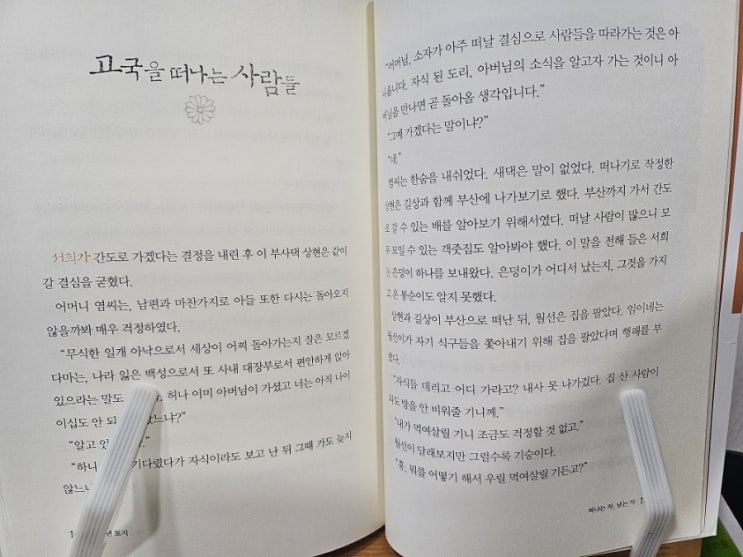 고국을 떠나는 사람들
서희가 간도로 가겠다는 결정을 내린 후 이 부사댁 상현은 같이
갈 결심을 굳혔다.
어머니 염씨는, 남편과 마찬가지로 아들 또한 다시는 돌아오지
않을까봐 매우 걱정하였다.
"무식한 일개 아낙으로서 세상이 어찌 돌아가는지 잘은 모르겠
다마는, 나라 잃은 백성으로서 또 사내 대장부로서 편안하게 앉아
있으라는 말도 허나 이미 아버님이 가셨고 너는 아직 나이
이십도 안 되 느냐?"
"알고 있
"하니 기다렸다가 자식이라도 보고 난 뒤 그때 가도 늦지
않느냐
토지
"어머님, 소자가 아주 떠날 결심으로 사람들을 따라가는 것은 아
니옵니다. 자식 된 도리, 아버님의 소식을 알고자 가는 것이니 아
버님을 만나면 곧 돌아올 생각입니다."
"그예 가겠다는 말이냐?"
"네."
염씨는 한숨을 내쉬었다. 새댁은 말이 없었다. 떠나기로 작정한
상현은 길상과 함께 부산에 나가보기로 했다. 부산까지 가서 간도
로 갈 수 있는 배를 알아보기 위해서였다. 떠날 사람이 많으니 모
두 모일 수 있는 객줏집도 알아봐야 했다. 이 말을 전해 들은 서희
는 은덩이 하나를 보내왔다. 은덩이가 어디서 났는지, 그것을 가지
고 온 봉순이도 알지 못했다.
상현과 길상이 부산으로 떠난 뒤, 월선은 집을 팔았다. 임이네는
월선이 자기 식구들을 쫓아내기 위해 집을 팔았다며 행패를 부
렸다.
"자식들 데리고 어디 가라고? 내사 못 나가겄다. 집 산 사람이
와도 방을 안 비워줄 기니께."
"내가 먹여살릴 기니 조금도 걱정할 것 없고."
월선이 달래보지만 그럴수록 기승이다.
"흥, 뭐를 어떻기 해서 우릴 먹여살릴 기든고?"
떠나는 자, 남는 자